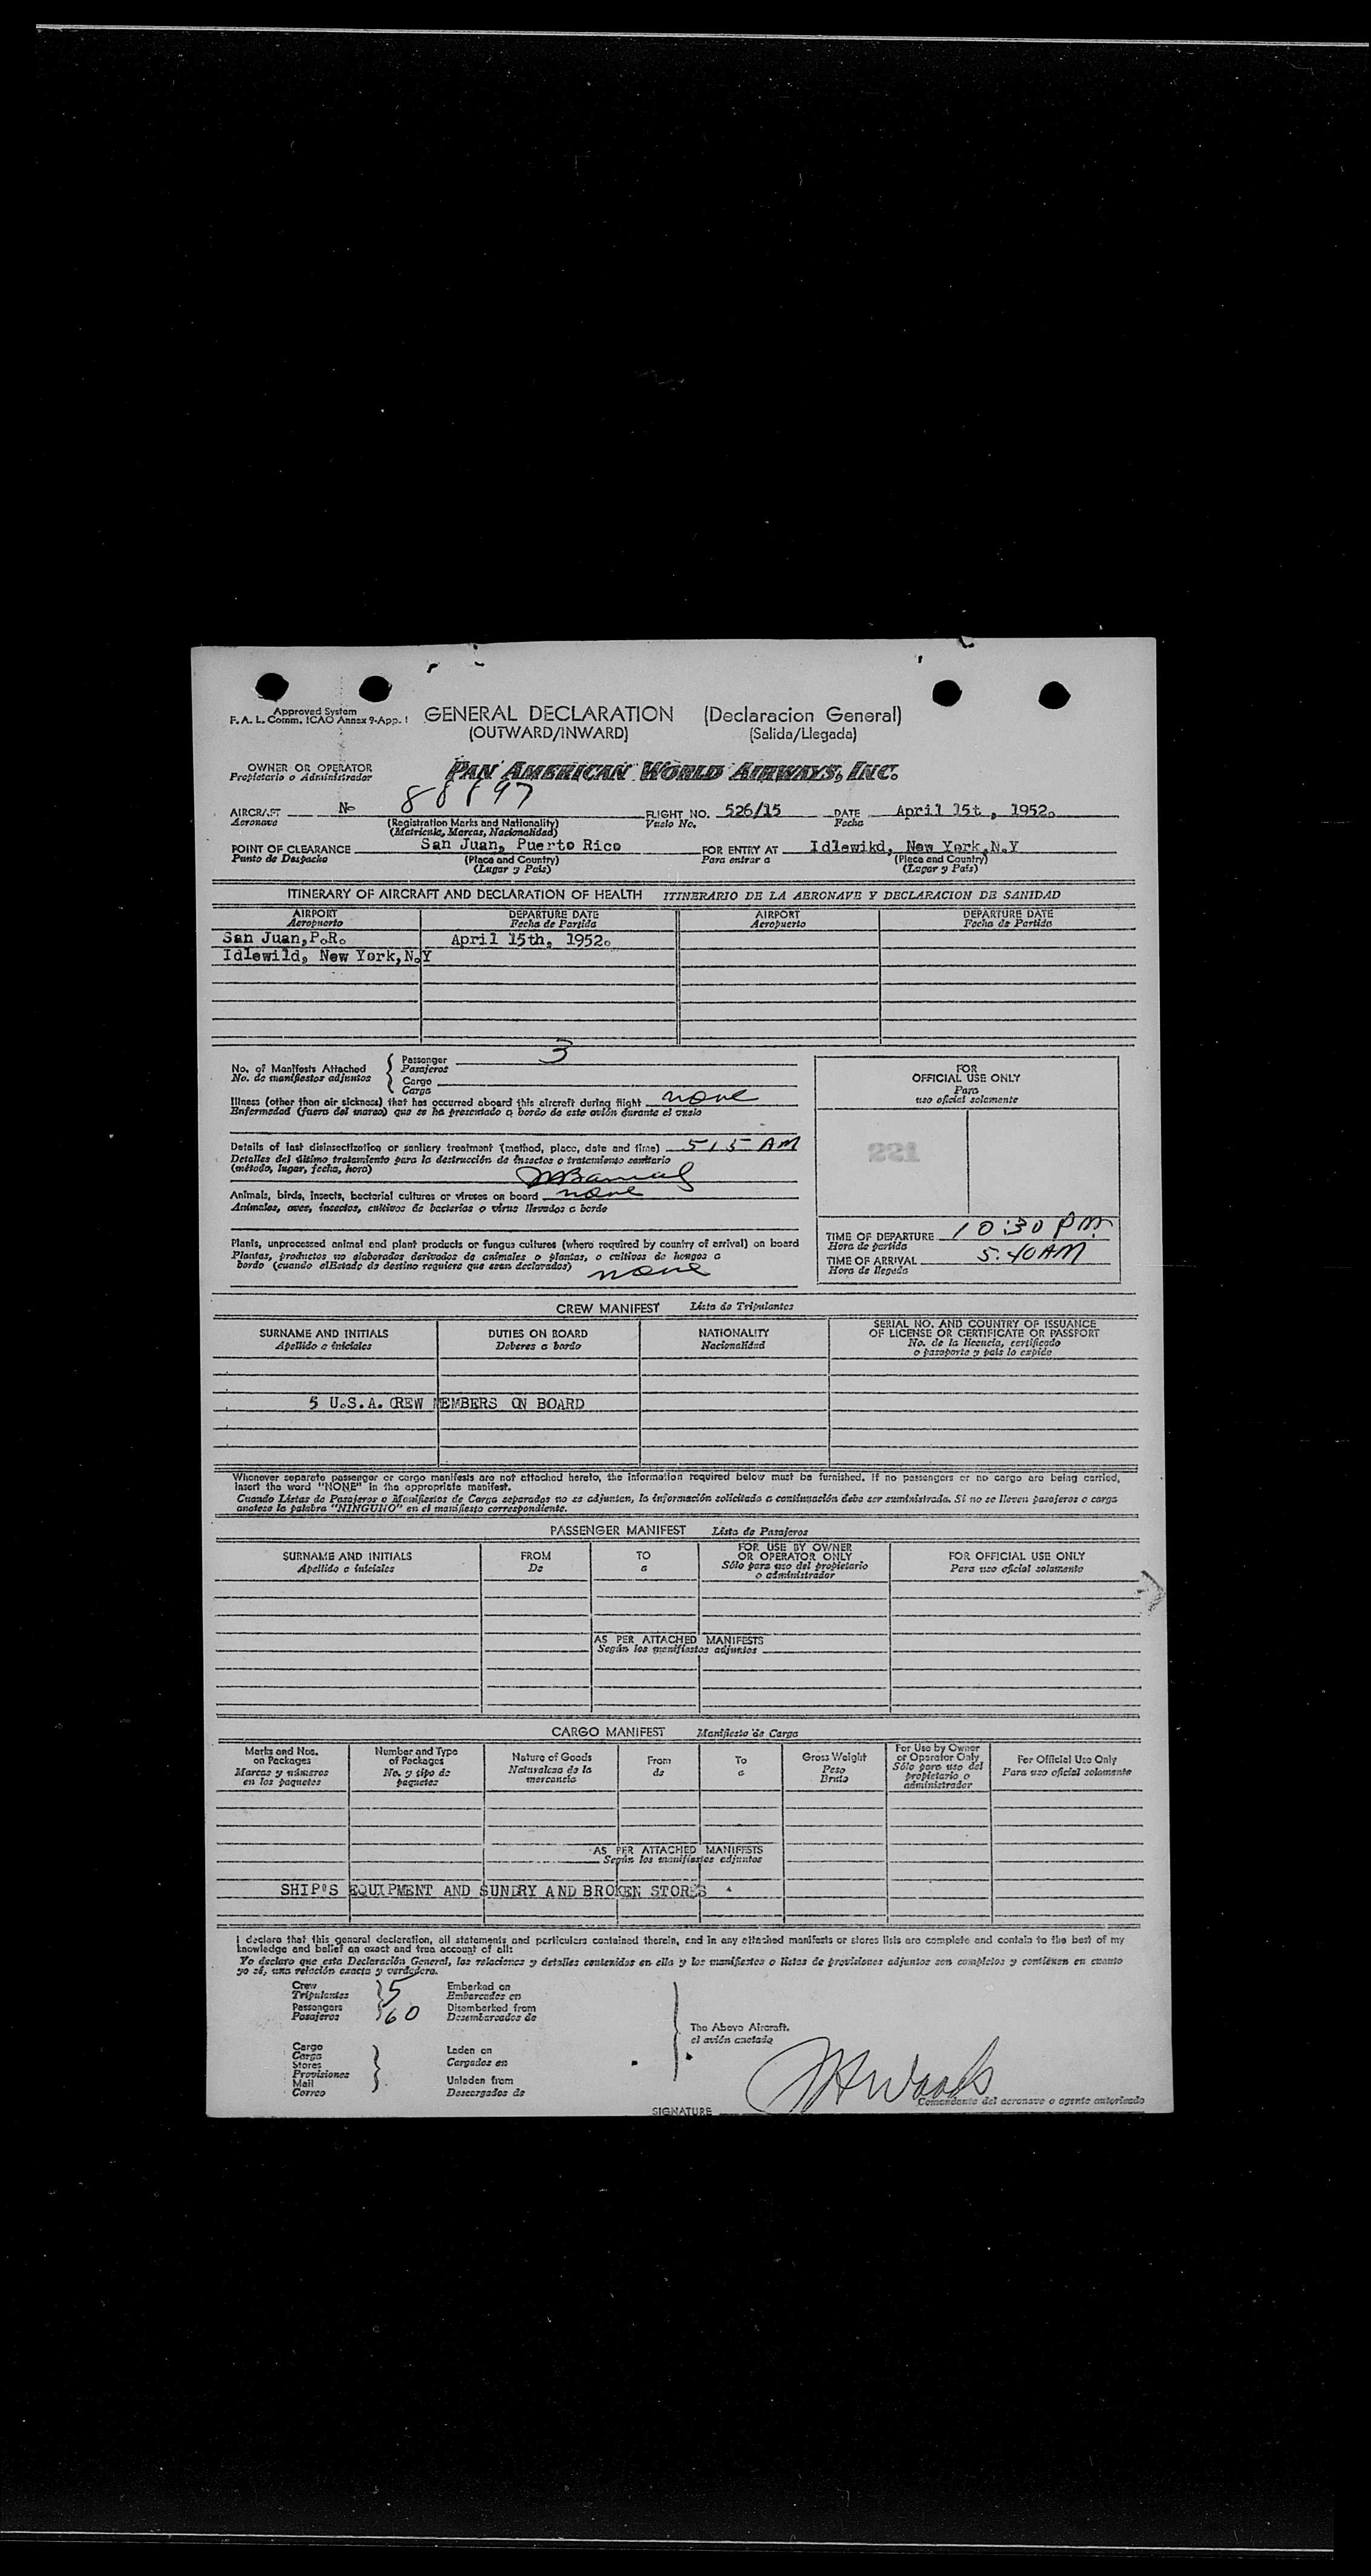 Approved System
F. A. L. Comm. ICAO Annex 9-App. 1
GENERAL DECLARATION (Declaracion General)
(OUTWARD/INWARD) (Salida/Llegada)
OWNER OR OPERATOR
Propietario o Administrador
PAN AMERICAN WORLD AIRWAYS, INC.
AIRCRAFT No FLIGHT NO. 526/15 DATE April 15t, 1952.
Aeronave (Registration Marks and Nationality) Vuelo No. Fecha
(Matricula, Marcas, Nacionalidad)
POINT OF CLEARANCE San Juan, Puerto Rico FOR ENTRY AT Idlewikd, New York,N.Y
Punto de Despacho (Place and Country) Para entrar a (Place and Country)
(Lugar y País) (Lugar y País)
ITINERARY OF AIRCRAFT AND DECLARATION OF HEALTH ITINERARIO DE LA AERONAVE Y DECLARACION DE SANIDAD
AIRPORT DEPARTURE DATE AIRPORT DEPARTURE DATE
Aeropuerto Fecha de Partida Aeropuerto Fecha de Partida
San Juan,P.R. April 15th, 1952.
Idlewild, New York,N.Y
No. of Manifests Attached
No. de manifiestos adjuntos
Passenger 3
Pasajeros
Cargo
Carga
Illness (other than air sickness) that has occurred aboard this aircraft during flight none
Enfermedad (fuera del mareo) que se ha presentado a bordo de este avión durante el vuelo
Details of last disinsectization or sanitary treatment (method, place, date and time) 515 AM
Detalles del último tratamiento para la destrucción de insectos o tratamiento sanitario
(método, lugar, fecha, hora)
Animals, birds, insects, bacterial cultures or viruses on board none
Animales, aves, insectos, cultivos de bacterias o virus llevados a bordo
Plants, unprocessed animal and plant products or fungus cultures (where required by country of arrival) on board
Plantas, productos no elaborados derivados de animales o plantas, o cultivos de hongos a
bordo (cuando elEstado de destino requiere que sean declarados) none
FOR
OFFICIAL USE ONLY
Para
uso oficial solamente
TIME OF DEPARTURE 10:30 PM.
Hora de partida
TIME OF ARRIVAL 5:40 AM
Hora de llegada
CREW MANIFEST Lista de Tripulantes
SURNAME AND INITIALS DUTIES ON BOARD NATIONALITY SERIAL NO. AND COUNTRY OF ISSUANCE
OF LICENSE OR CERTIFICATE OR PASSPORT
Apellido e iniciales Deberes a bordo Nacionalidad No. de la licencia, certificado
o pasaporte y país lo expide
5 U.S.A. CREW MEMBERS ON BOARD
Whenever separate passenger or cargo manifests are not attached hereto, the information required below must be furnished. If no passengers or no cargo are being carried,
insert the word "NONE" in the appropriate manifest.
Cuando Listas de Pasajeros o Manifiestos de Carga separados no se adjuntan, la información solicitada a continuación debe ser suministrada. Si no se lleven pasajeros o carga
anotese la palabra "NINGUNO" en el manifiesto correspondiente.
PASSENGER MANIFEST Lista de Pasajeros
SURNAME AND INITIALS FROM TO FOR USE BY OWNER
OR OPERATOR ONLY FOR OFFICIAL USE ONLY
Apellido e iniciales De a Sólo para uso del propietario
o administrador Para uso oficial solamente
AS PER ATTACHED MANIFESTS
Según los manifiestos adjuntos
CARGO MANIFEST Manifiesto de Carga
Marks and Nos.
on Packages
Marcas y números
en los paquetes
Number and Type
of Packages
No. y tipo de
paquetes
Nature of Goods
Naturaleza de la
mercancia
From
de
To
a
Gross Weight
Peso
Bruto
For Use by Owner
or Operator Only
Sólo para uso del
propietario o
administrador
For Official Use Only
Para uso oficial solamente
AS PER ATTACHED MANIFESTS
Según los manifiestos adjuntos
SHIP'S EQUIPMENT AND SUNDRY AND BROKEN STORES
I declare that this general declaration, all statements and particulars contained therein, and in any attached manifests or stores lists are complete and contain to the best of my
knowledge and belief an exact and true account of all:
Yo declaro que esta Declaración General, las relaciones y detalles contenidos en ella y los manifiestos o listas de provisiones adjuntos son completos y contienen en cuanto
yo sé, una relación exacta y verdadera.
Crew 5 Embarked on
Tripulantes Embarcados en
Passengers 60 Disembarked from
Pasajeros Desembarcados de
The Above Aircraft.
el avión anotado
Cargo Laden on
Carga Cargados en
Stores
Provisiones
Mail Unladen from
Correo Descargados de
SIGNATURE JHWoods
Comandante del aeronave o agente autorizado